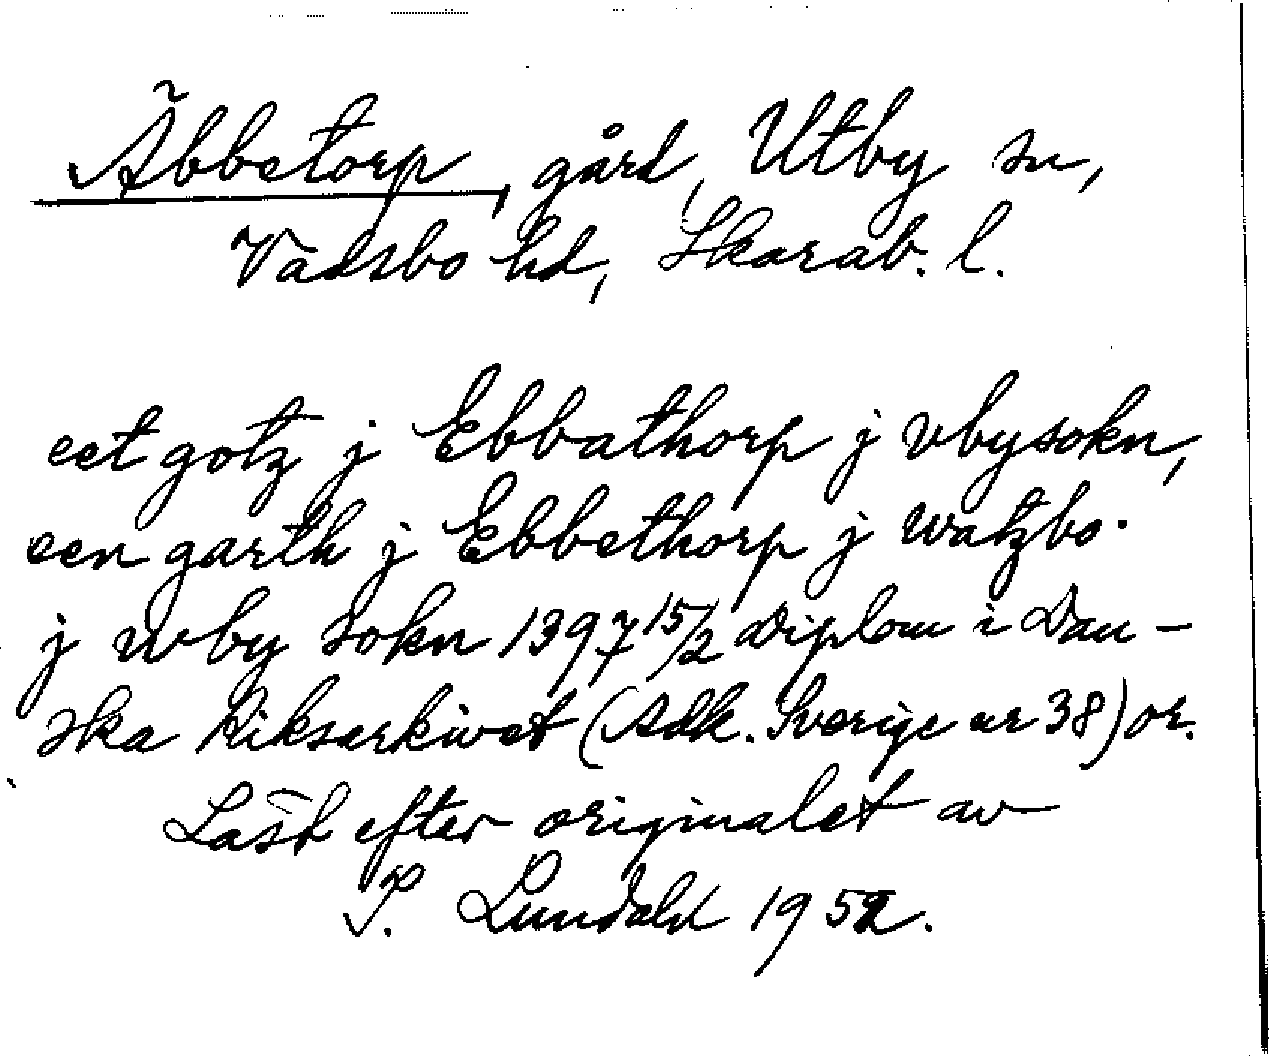 Äbbetorp, gård, Utby sn,
Vadsbo hd, Skarab. l.
eet gotz j Ebbathorp j vbysokn,
een garth j Ebbethorp j watzbo.
j wby sokn 1397 15/2 Diplom i Dan-
ska Riksarkivet (Adk. Sverige nr 38) or.
Läst efter originalet av
P. Lundahl 1952.